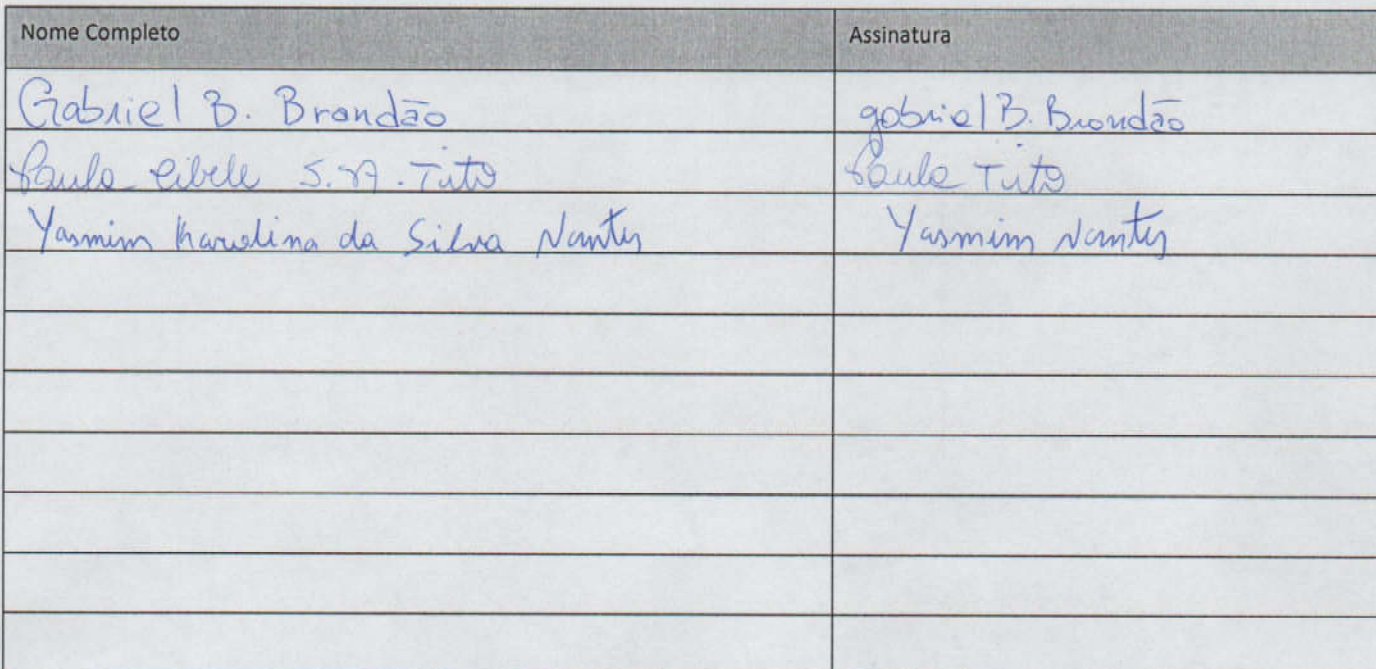 Nome Completo Assinatura
Gabriel B. Brandão gabriel B. Brandão
Paula Cibele S. A. Tito Paula Tito
Yasmim Karolina da Silva Nantes Yasmim Nantes